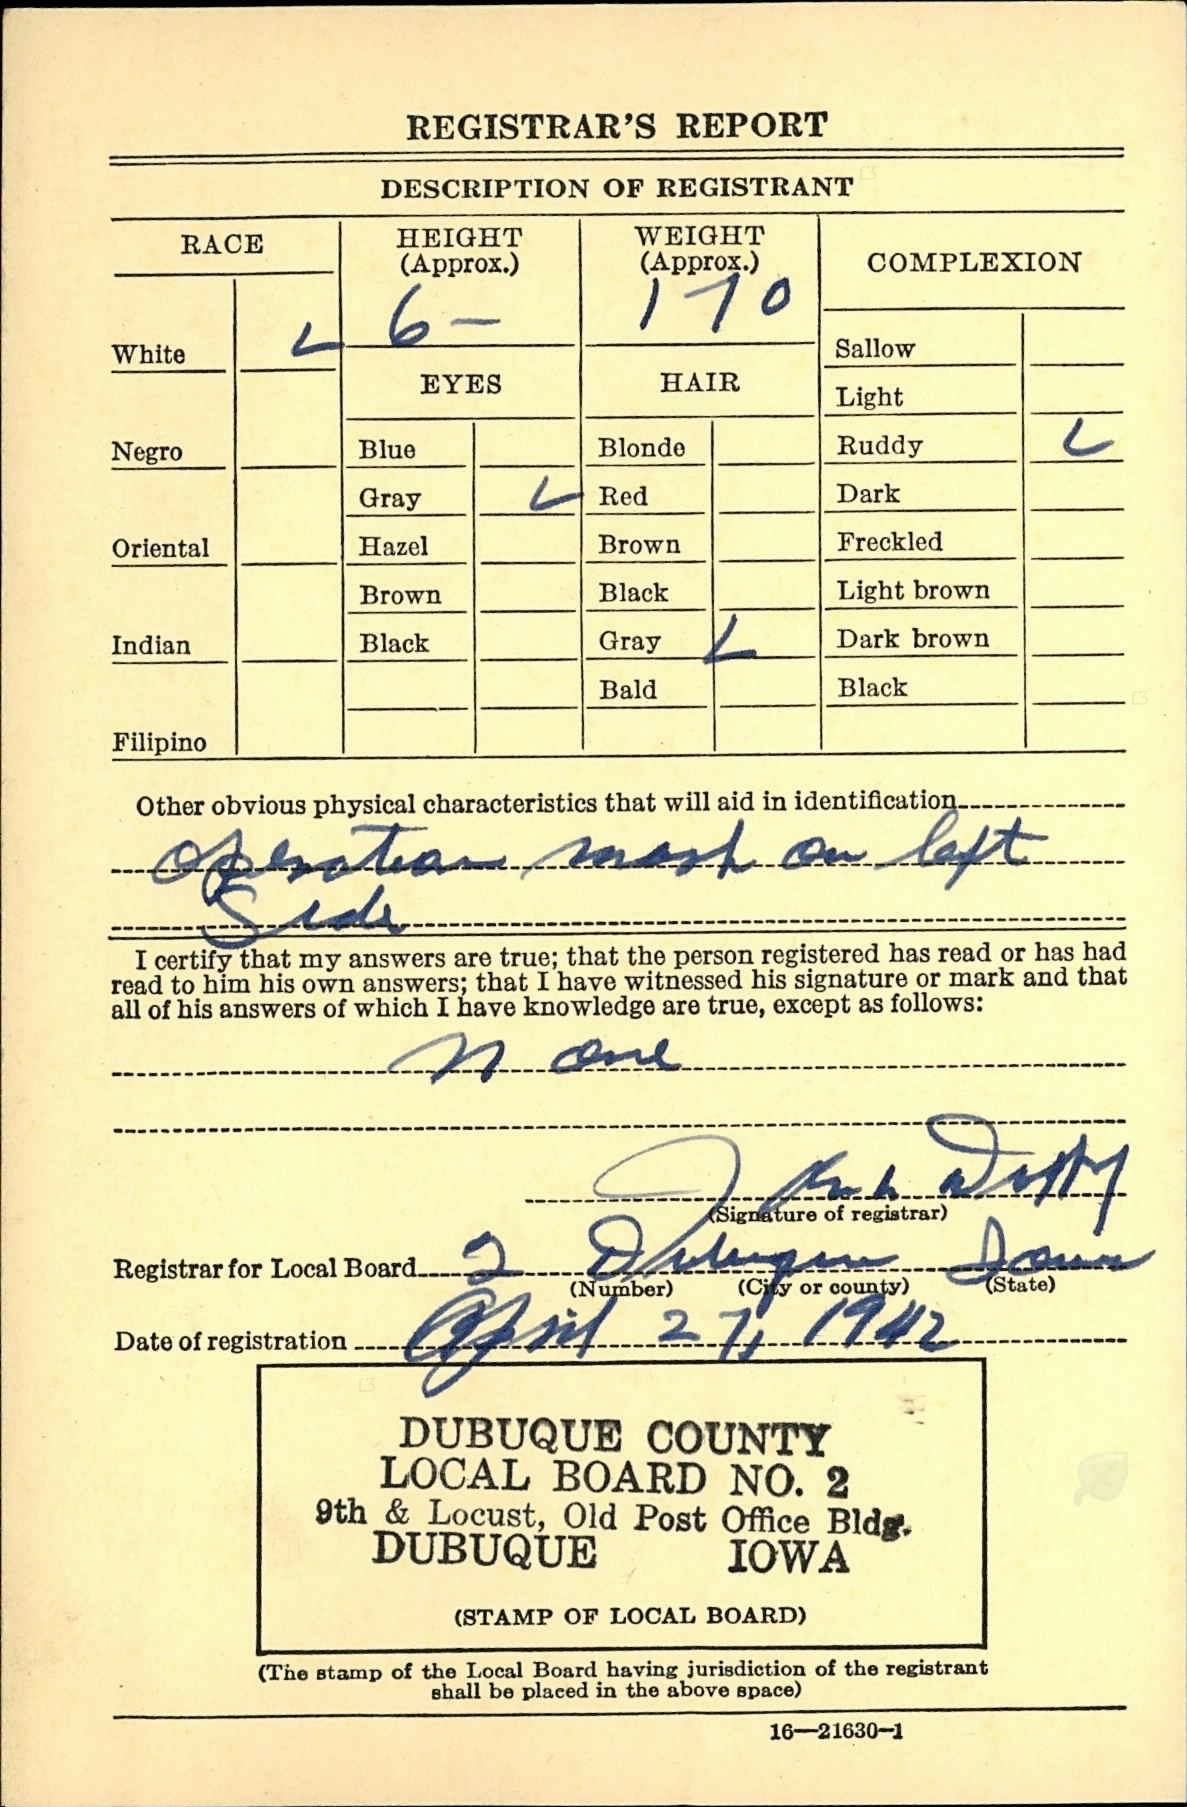 REGISTRAR'S REPORT
DESCRIPTION OF REGISTRANT
RACE
HEIGHT
(Approx.)
WEIGHT
(Approx.)
COMPLEXION
6 –
170
White
EYES
HAIR
Sallow
Light
Negro
Blue
Blonde
Ruddy
Gray
Red
Dark
Oriental
Hazel
Brown
Freckled
Brown
Black
Light brown
Indian
Black
Gray
Dark brown
Bald
Black
Filipino
Other obvious physical characteristics that will aid in identification
operation mark on left
Side
I certify that my answers are true; that the person registered has read or has had
read to him his own answers; that I have witnessed his signature or mark and that
all of his answers of which I have knowledge are true, except as follows:
None
John
(Signature of registrar)
Registrar for Local Board 2 Dubuque Iowa
(Number) (City or county) (State)
Date of registration April 27, 1942
DUBUQUE COUNTY
LOCAL BOARD NO. 2
9th & Locust, Old Post Office Bldg.
DUBUQUE IOWA
(STAMP OF LOCAL BOARD)
(The stamp of the Local Board having jurisdiction of the registrant
shall be placed in the above space)
16—21630-1